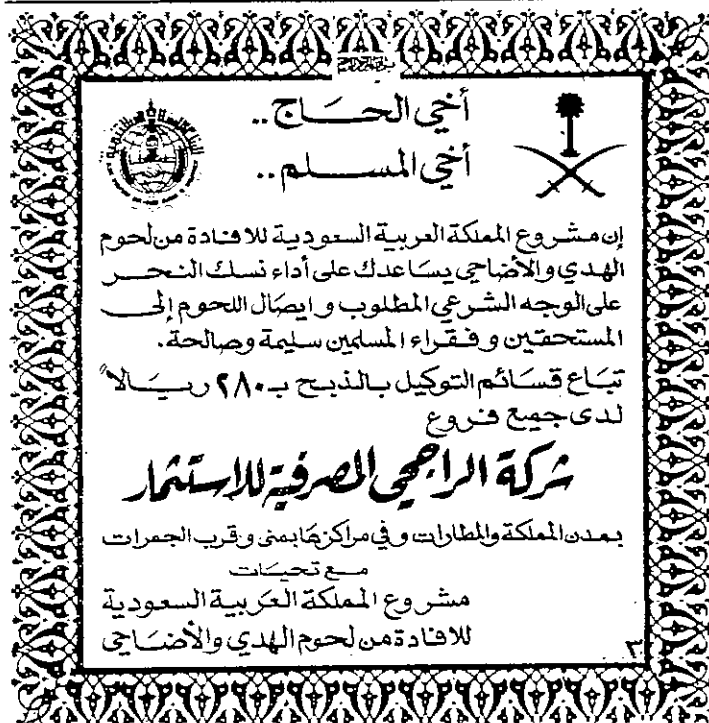 أخي الحـــاج ..
أخي المســـلم ..
إن مشروع المملكة العربية السعودية للافادة من لحوم
الهدي والأضاحي يساعدك على أداء نسك النحـر
على الوجه الشرعي المطلوب و ايصال اللحوم إلى
المستحقين و فـقـراء المسلمين سليمة وصالحة.
تباع قسائم التوكيل بـالذبـح بـ ٢٨٠ ريـــالاً
لدى جميع فـروع
شركة الراجحي المصرفية للاستثمار
بمدن المملكة والمطارات و في مراكزها بمنى و قرب الجمرات
مـع تحيـات
مشروع المملكة العربية السعودية
للافادة من لحوم الهدي والأضـاحي
٣